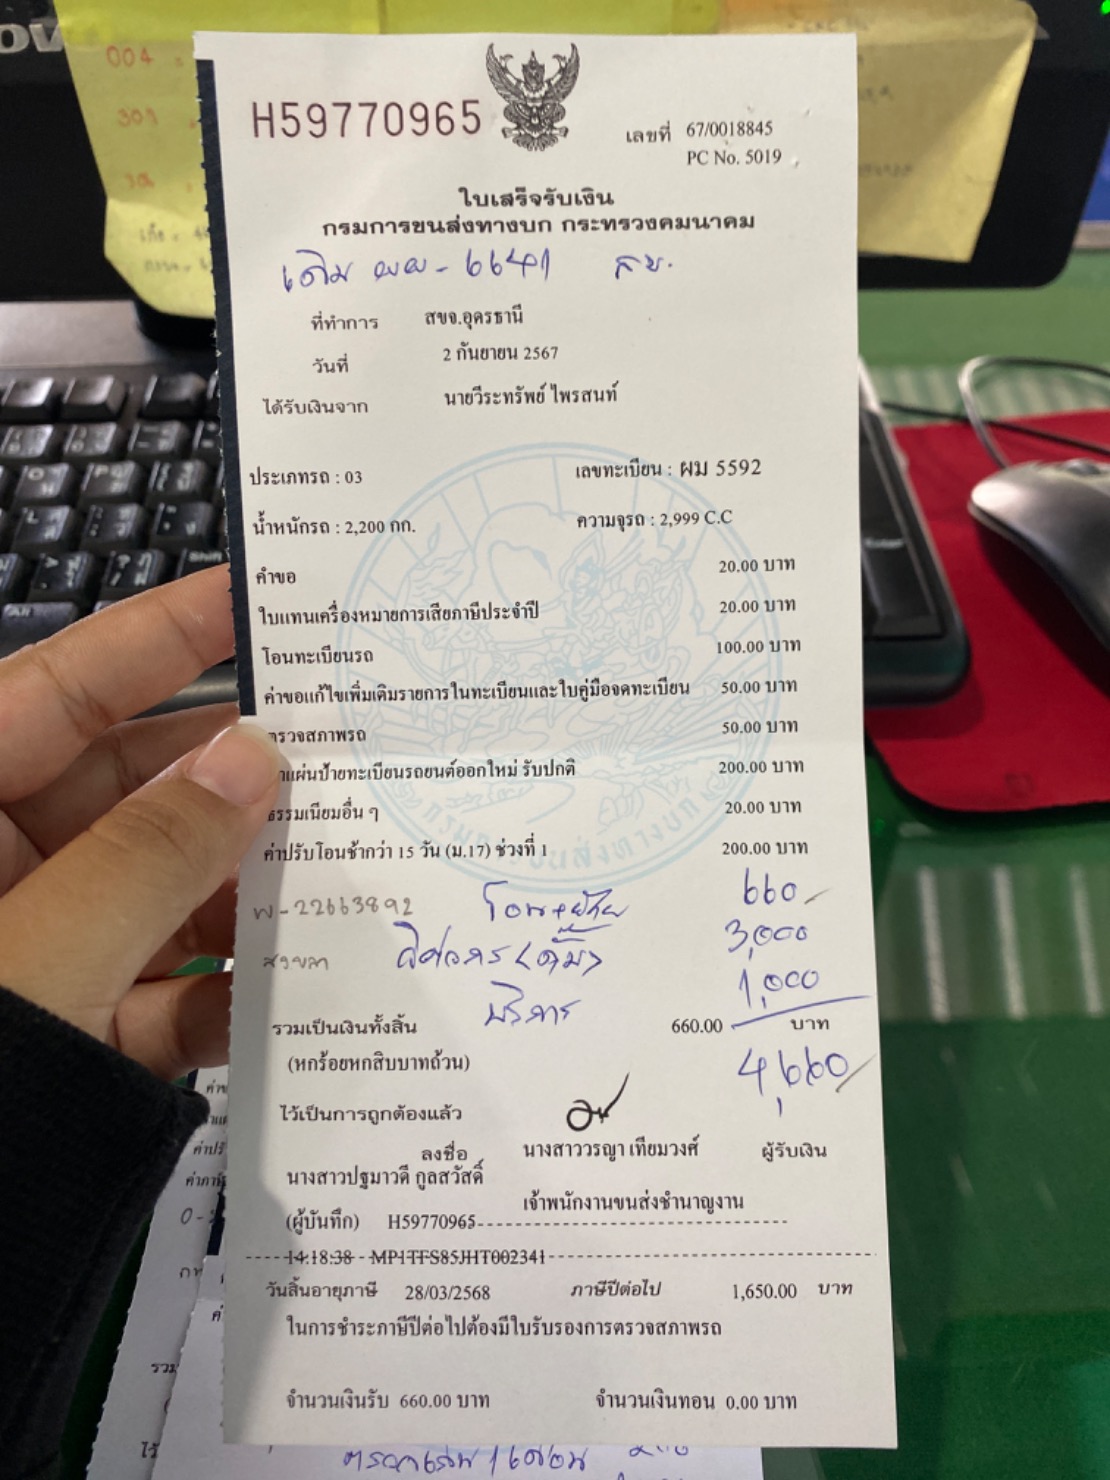 H59770965
เลขที่ 67/0018845
PC No. 5019
ใบเสร็จรับเงิน
กรมการขนส่งทางบก กระทรวงคมนาคม
เดิม ผผ-6641 สข.
ที่ทำการ สขจ.อุดรธานี
วันที่ 2 กันยายน 2567
ได้รับเงินจาก นายวีระทรัพย์ ไพรสนท์
ประเภทรถ : 03 เลขทะเบียน : ผม 5592
น้ำหนักรถ : 2,200 กก. ความจุรถ : 2,999 C.C
คำขอ 20.00 บาท
ใบแทนเครื่องหมายการเสียภาษีประจำปี 20.00 บาท
โอนทะเบียนรถ 100.00 บาท
ค่าขอแก้ไขเพิ่มเติมรายการในทะเบียนและใบคู่มือจดทะเบียน 50.00 บาท
ตรวจสภาพรถ 50.00 บาท
แผ่นป้ายทะเบียนรถยนต์ออกใหม่ รับปกติ 200.00 บาท
ธรรมเนียมอื่น ๆ 20.00 บาท
ค่าปรับโอนช้ากว่า 15 วัน (ม.17) ช่วงที่ 1 200.00 บาท
พ-22663892 โอน+ย้าย 660
สงขลา วิศวกร (ดั๊ม) 3,000
บริการ 1,000
รวมเป็นเงินทั้งสิ้น 660.00 บาท
(หกร้อยหกสิบบาทถ้วน) 4,660
ไว้เป็นการถูกต้องแล้ว
ลงชื่อ นางสาววรญา เทียมวงศ์ ผู้รับเงิน
นางสาวปฐมาวดี กูลสวัสดิ์
เจ้าพนักงานขนส่งชำนาญงาน
(ผู้บันทึก) H59770965
14:18:38 - MP1TFS85JHT002341
วันสิ้นอายุภาษี 28/03/2568 ภาษีปีต่อไป 1,650.00 บาท
ในการชำระภาษีปีต่อไปต้องมีใบรับรองการตรวจสภาพรถ
จำนวนเงินรับ 660.00 บาท จำนวนเงินทอน 0.00 บาท